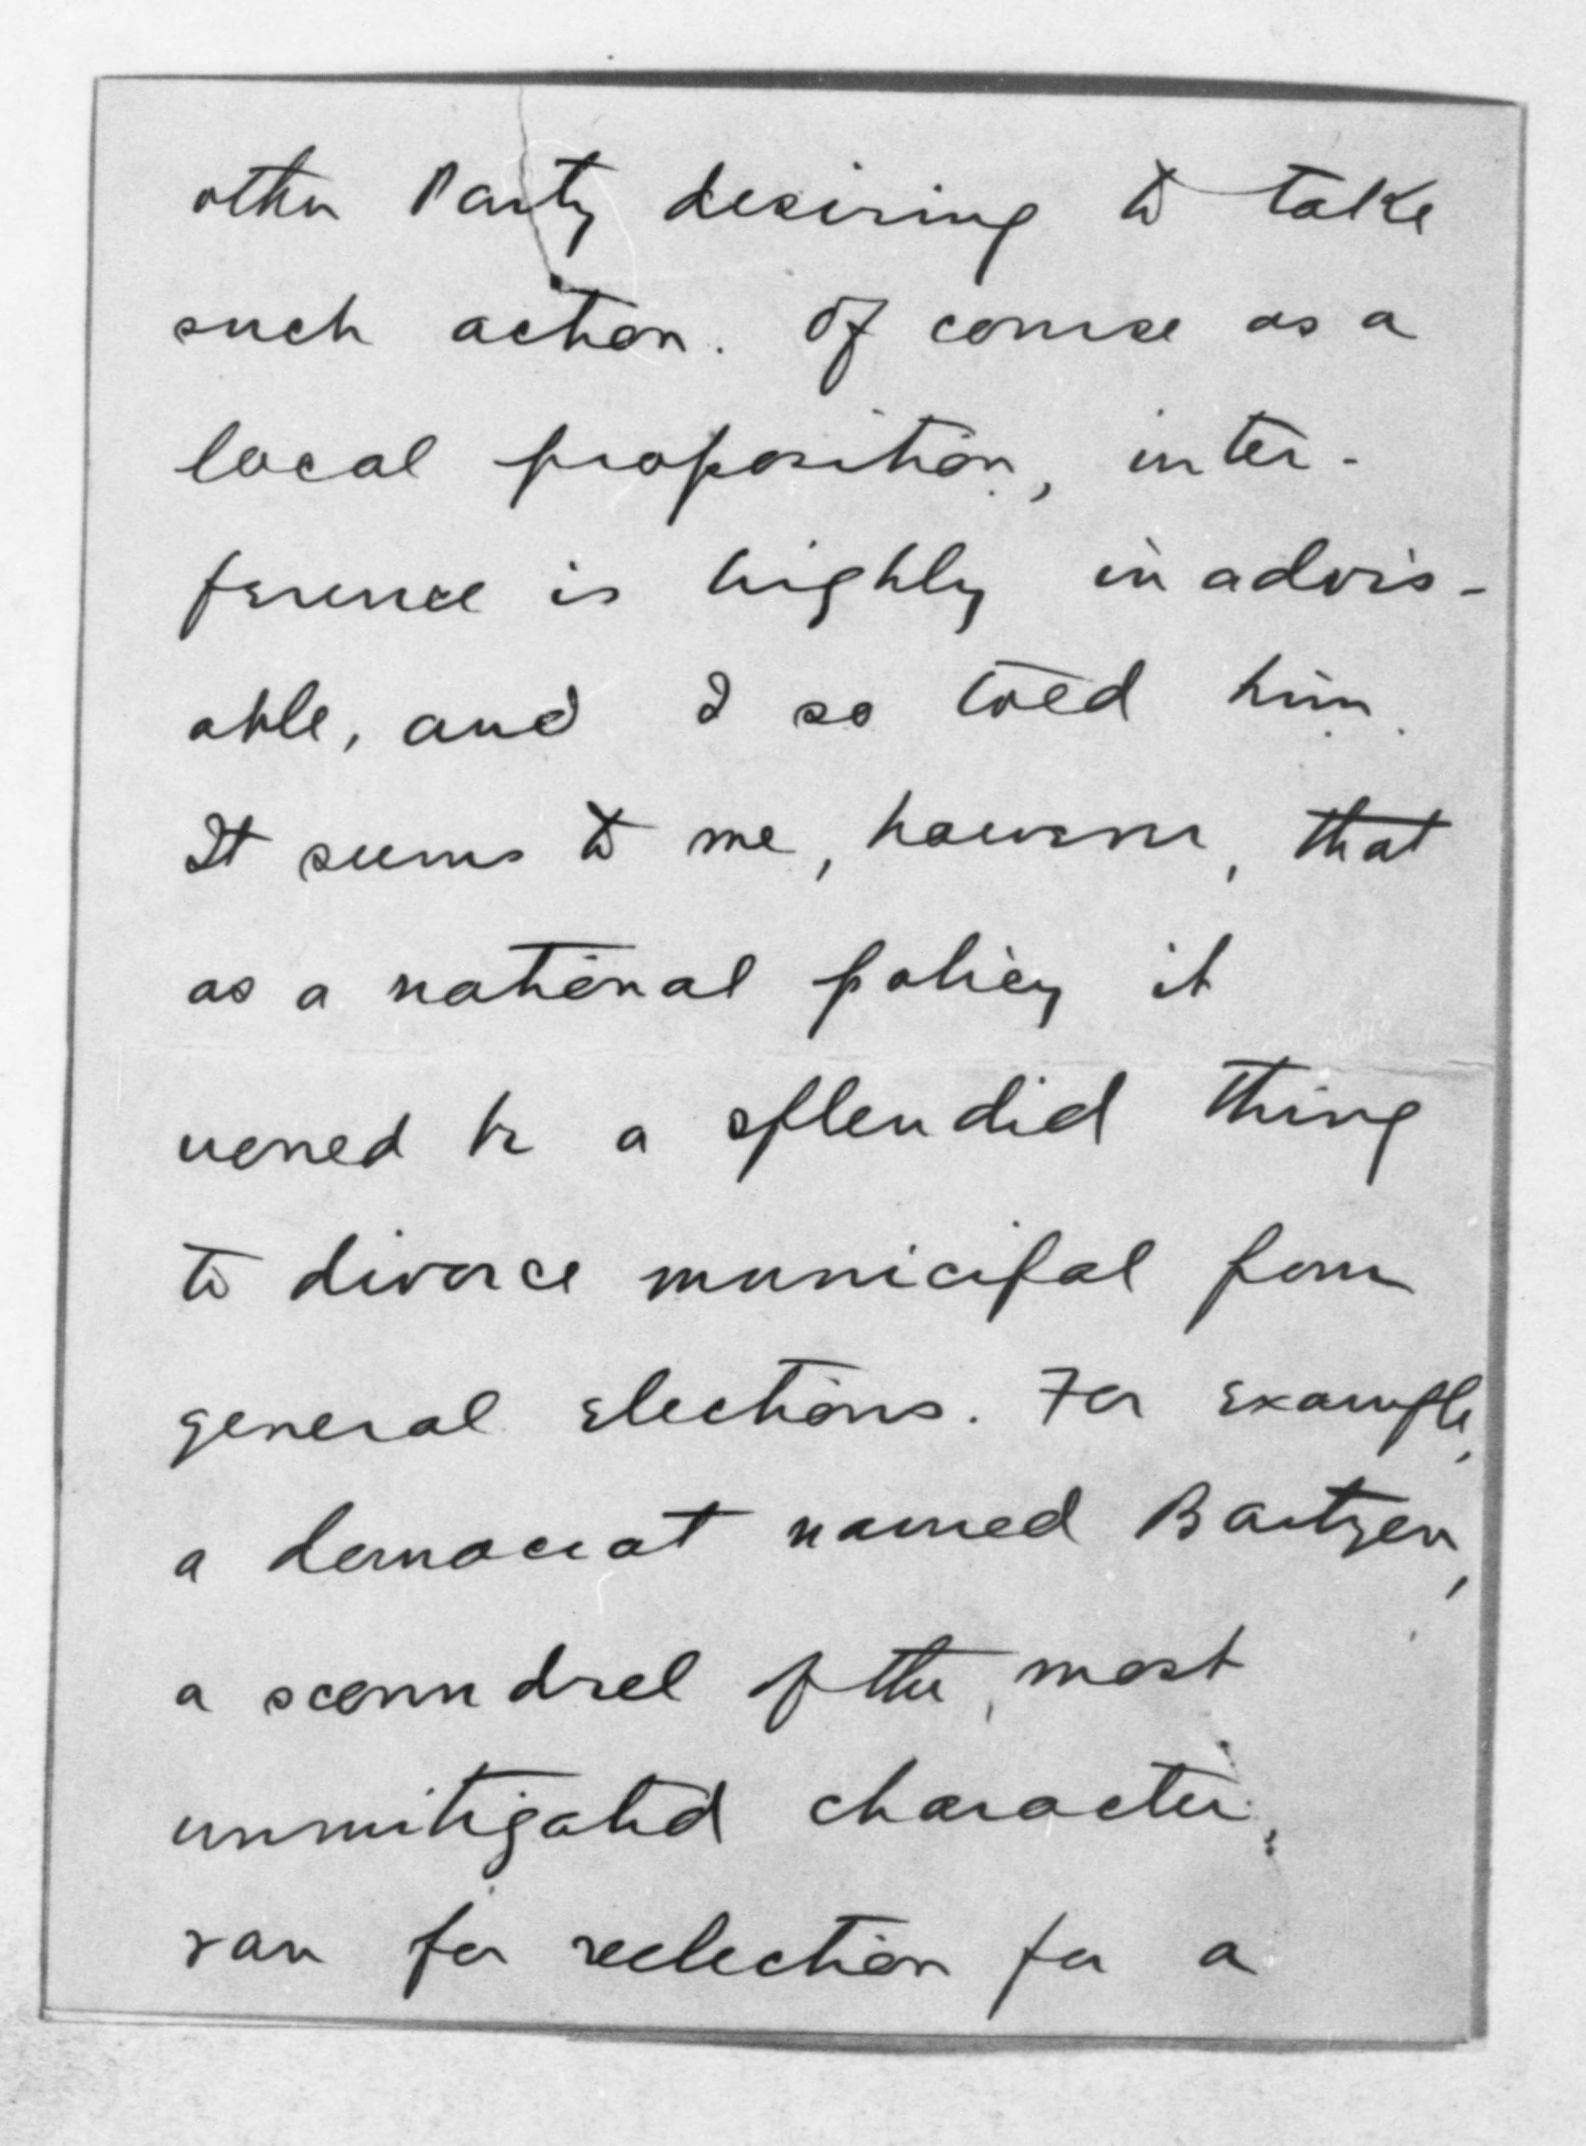 other Party desiring to take
such action. Of course as a
local proposition, inter-
ference is highly inadvis-
able, and I so told him.
It seems to me, however, that
as a national policy it
would be a splendid thing
to divorce municipal from
general elections. For example,
a democrat named Bartzen,
a scoundrel of the most
unmitigated character,
ran for reelection for a